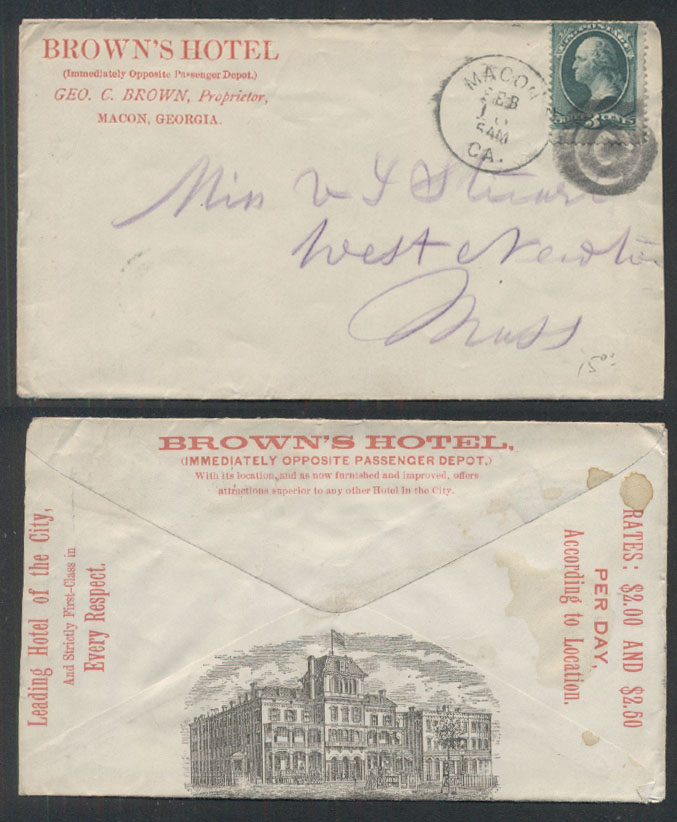 BROWN'S HOTEL
(Immediately Opposite Passenger Depot.)
GEO. C. BROWN, Proprietor,
MACON, GEORGIA.
MACON
FEB
5AM
GA.
U.S. POSTAGE
THREE 3 CENTS
Miss V I Stuart
West Newton
Mass
15⁰⁰
BROWN'S HOTEL,
(IMMEDIATELY OPPOSITE PASSENGER DEPOT.)
With its location, and as now furnished and improved, offers
attractions superior to any other Hotel in the City.
Leading Hotel of the City,
And Strictly First-Class in
Every Respect.
RATES: $2.00 AND $2.50
PER DAY,
According to Location.